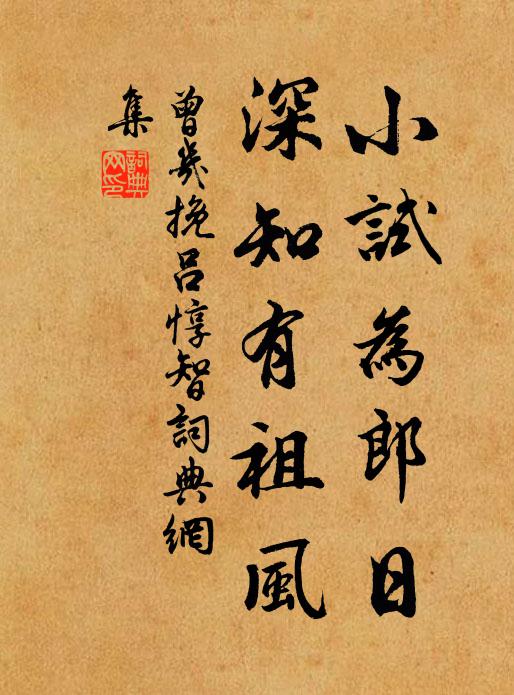 小試為郎日
深知有祖風
曾幾挽呂惇智詞典網
集
詞典
网印